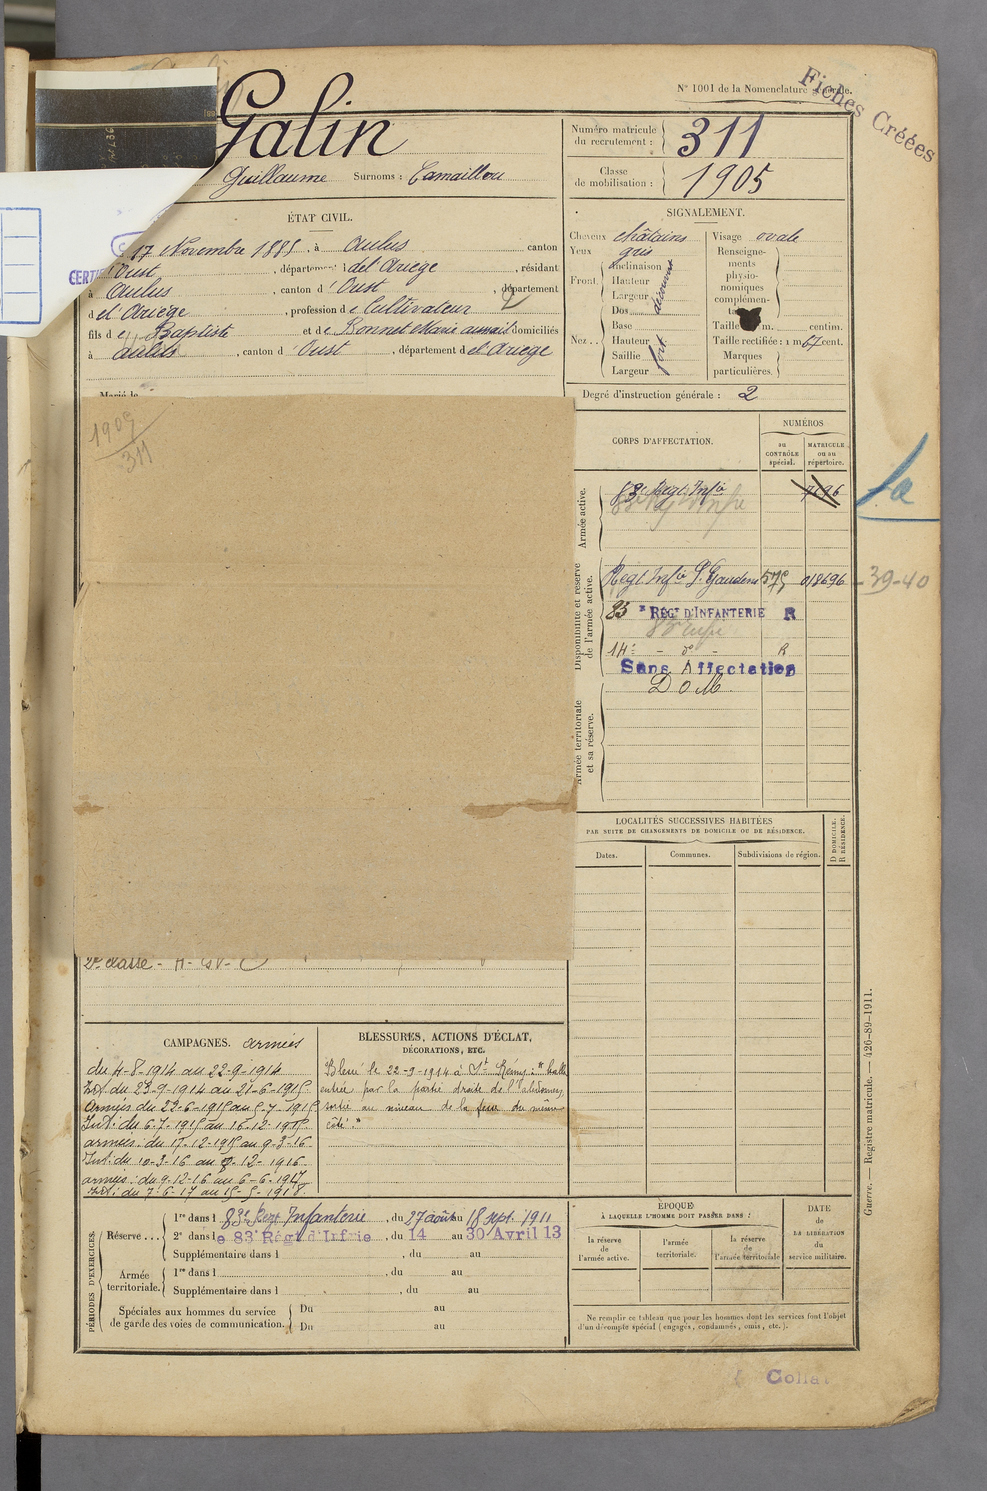 N° 1001 de la Nomenclature générale.
Fiches Créées
Galin
Guillaume Surnoms : Camaillou
Numéro matricule du recrutement : 311
Classe de mobilisation : 1905
ÉTAT CIVIL.
17 Novembre 1885, à Aulus canton
Oust, département del Ariège, résidant
à Aulus, canton d'Oust, département
d el'Ariège, profession de Cultivateur
fils de Baptiste et de Bonnet Marie domiciliés
à aulus, canton d'Oust, département d el Ariège
Marié le
CERTI
SIGNALEMENT.
Cheveux châtains
Yeux gris
Front. Inclinaison
Hauteur
Largeur
Nez.. Dos
Base
Hauteur fort
Saillie
Largeur
Visage ovale
Renseignements physionomiques complémen-
Taille m. centim.
Taille rectifiée : 1 m 67 cent.
Marques particulières.
Degré d'instruction générale : 2
1905
311
CORPS D'AFFECTATION.
NUMÉROS
au CONTRÔLE spécial.
MATRICULE ou au répertoire.
Armée active.
83e Regt Infie 7696
Disponibilité et réserve de l'armée active.
Regt Infie St Gaudens 575 018696 - 39-40
83 e RÉGt D'INFANTERIE R
14e - do - R
Sans Affectation
D O M
Armée territoriale et sa réserve.
LOCALITÉS SUCCESSIVES HABITÉES
PAR SUITE DE CHANGEMENTS DE DOMICILE OU DE RÉSIDENCE.
Dates.
Communes.
Subdivisions de région.
D DOMICILE.
R RÉSIDENCE.
2e classe -
CAMPAGNES. armées
du 4-8-1914 au 22-9-1914
Int du 23-9-1914 au 21-6-1915
Armées du 22-6-1915 au 5-7-1915
Int: du 6-7-1915 au 16-12-1915
armées: du 17-12-1915 au 9-3-16
Int: du 10-3-16 au 8-12-1916
armées: du 9-12-16 au 6-6-1917
Int: du 7-6-17 au 15-5-1918
BLESSURES, ACTIONS D'ÉCLAT,
DÉCORATIONS, ETC.
Blessé le 22-9-1914 à St Rémy: "balle
entrée par la partie droite de l'abdomen,
sortie au niveau de la fesse du même
côté."
PÉRIODES D'EXERCICES.
Réserve...
1re dans l 83e Regt Infanterie, du 27 août au 18 sept. 1911
2e dans l e 83e Régt d'Infrie, du 14 au 30 Avril 13
Supplémentaire dans l , du au
Armée territoriale.
1re dans l , du au
Supplémentaire dans l , du au
Spéciales aux hommes du service de garde des voies de communication.
Du au
Du au
ÉPOQUE
À LAQUELLE L'HOMME DOIT PASSER DANS :
la réserve de l'armée active.
l'armée territoriale.
la réserve de l'armée territoriale
DATE de LA LIBÉRATION du service militaire.
Ne remplir ce tableau que pour les hommes dont les services font l'objet
d'un décompte spécial (engagés, condamnés, omis, etc.).
Guerre. — Registre matricule. — 426-89-1911.